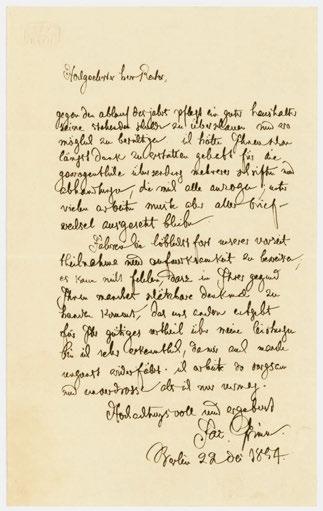 Hochgeehrter herr Rath,
gegen den ablauf des jahrs pflegt ein guter haushalter
seine stehenden zu überschauen und wo
möglich zu berichtigen. ich hätte Ihnen schon
längst dank zu erstatten gehabt für die
übersendung mehrerer schriften und
abhandlungen, die mich alle anzogen, unter
vielen arbeiten muste aber aller brief-
wechsel ausgesetzt bleiben
Fahren Sie löblichst fort unserer vorzeit
theilnahme und aufmerksamkeit zu beweisen,
es kann nicht fehlen, dasz in Ihrer gegend
Ihnen manches denkmal zu
handen kommt, das uns andern entgeht
für Ihr gütiges urtheil über meine leistungen
bin ich sehr erkenntlich, da mir auch manche
ich arbeite so sorgsam
und unverdrossen als ich nur vermag.
Hochachtungsvoll und ergebenst
Jac. Grimm.
Berlin 22 1854.